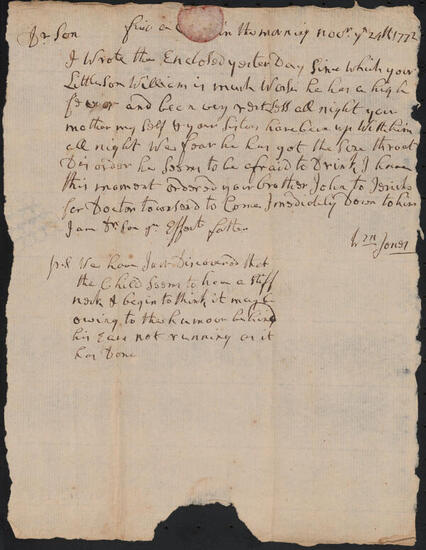 Dr Son five a Clock in the morning novr. ye 24th 1772
I Wrote the Enclosed yesterday Since which your
Little son William is much Worse he has a high
fever and been very restless all night your
mother my self & your Sisters have been up With him
all night We fear he has got the Sore throat
Disorder he Seem to be afraid to Drink I have
this moment ordered your brother John to Jericho
for Doctor townsend to Come Imediately Down to him
I am Dr Son yr Affect father
Wm Jones
PS We have Just Discovered that
the Child Seem to have a Stiff
neck & begin to think it may be
owing to the humour behind
his Ears not running as it
has Done